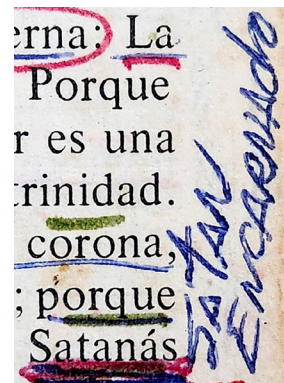 erna: La
Porque
r es una
trinidad.
corona,
; porque
Satanás
SATAN
ENCARNADO